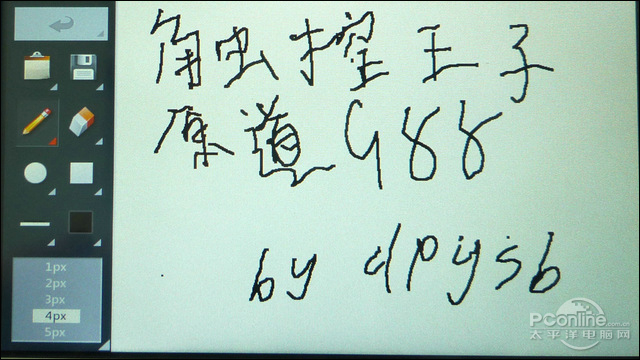 触控王子
原道G88
by dpysb
1px
2px
3px
4px
5px
PConline.com.cn
太平洋电脑网